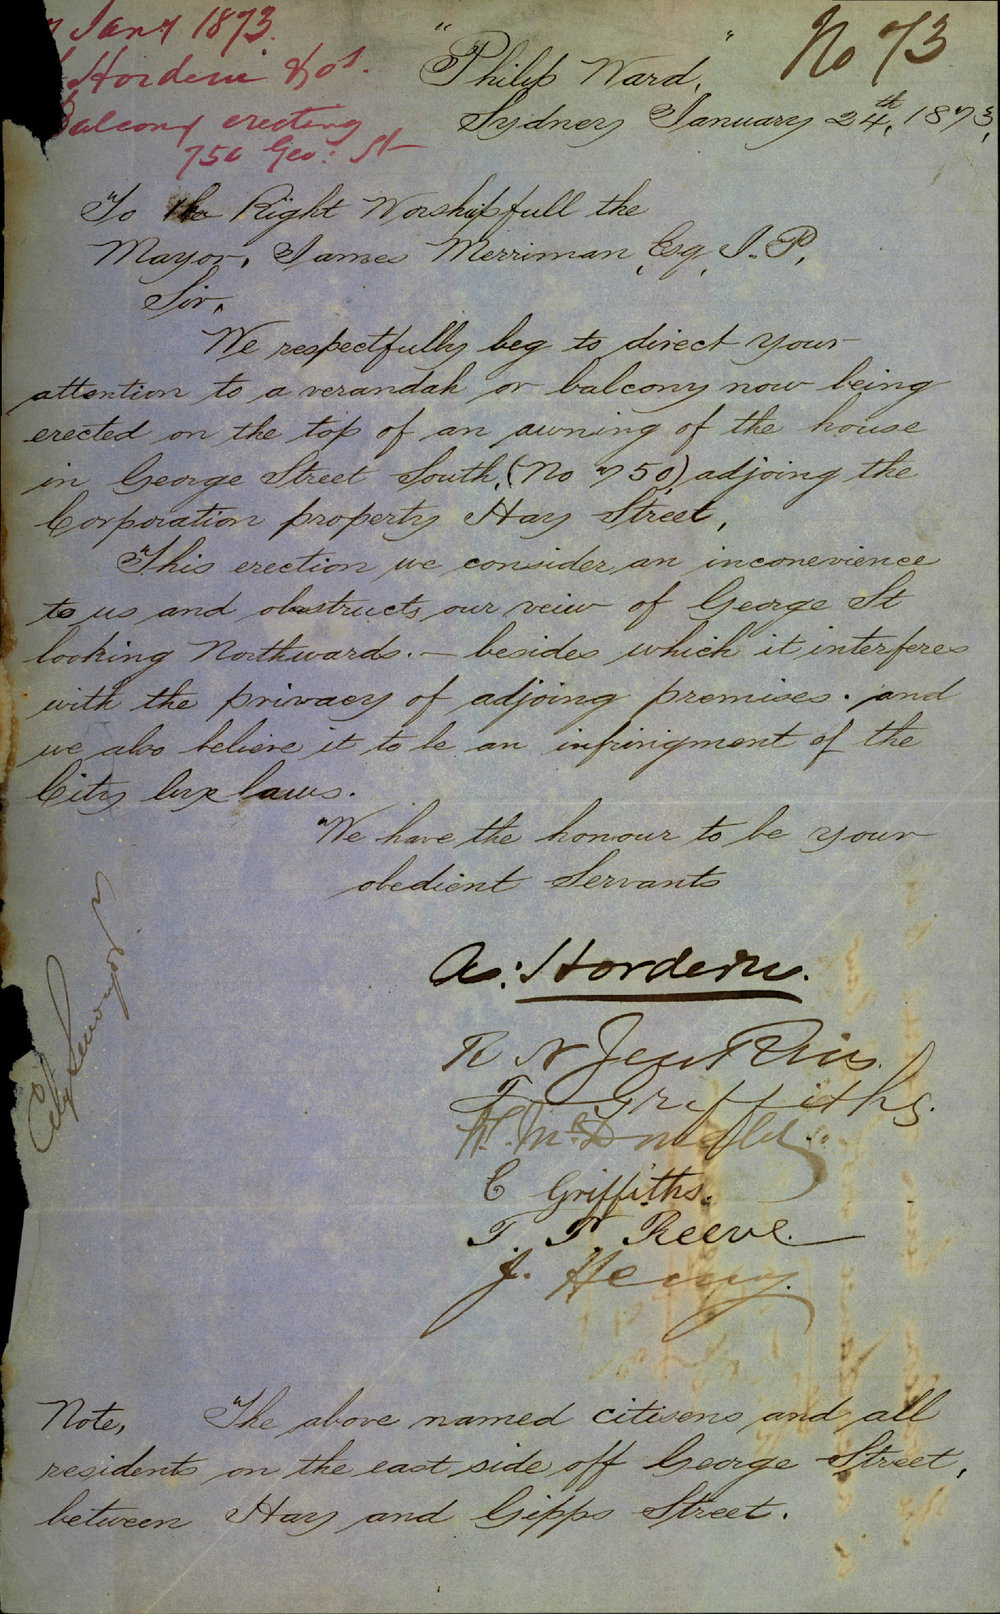 Jany 1873.
Hordern & ors.
Balcony erecting
756 Geo: St
No 73
"Philip Ward,"
Sydney January 24th, 1873,
To the Right Worshipfull the
Mayor, James Merriman, Esq, J.P,
Sir,
We respectfully beg to direct your
attention to a verandah or balcony now being
erected on the top of an awning of the house
in George Street South, (No 750) adjoing the
Corporation property Hay Street,
This erection we consider an inconevience
to us and obstructs our veiw of George St
looking Northwards. — besides which it interferes
with the privacy of adjoing premises. and
we also believe it to be an infringment of the
City bye laws.
We have the honour to be your
obedient Servants
City Surveyor
A: Hordern.
R N Jenkins.
T Griffiths.
C Griffiths.
T. W. Reeve.
J. Henry.
Note, The above named citisens and all
residents on the east side off George Street,
between Hay and Gipps Street.